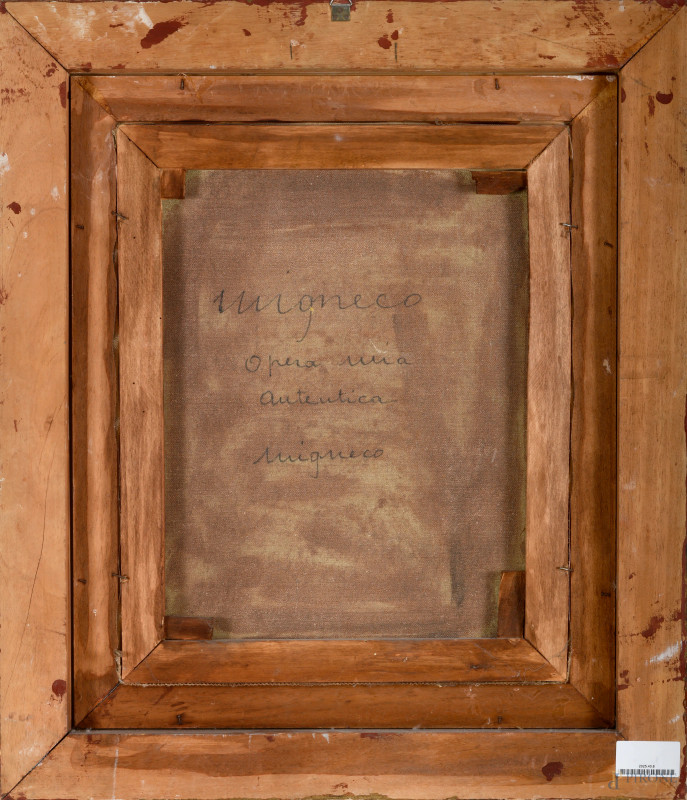 Migneco
Opera mia
autentica
Migneco